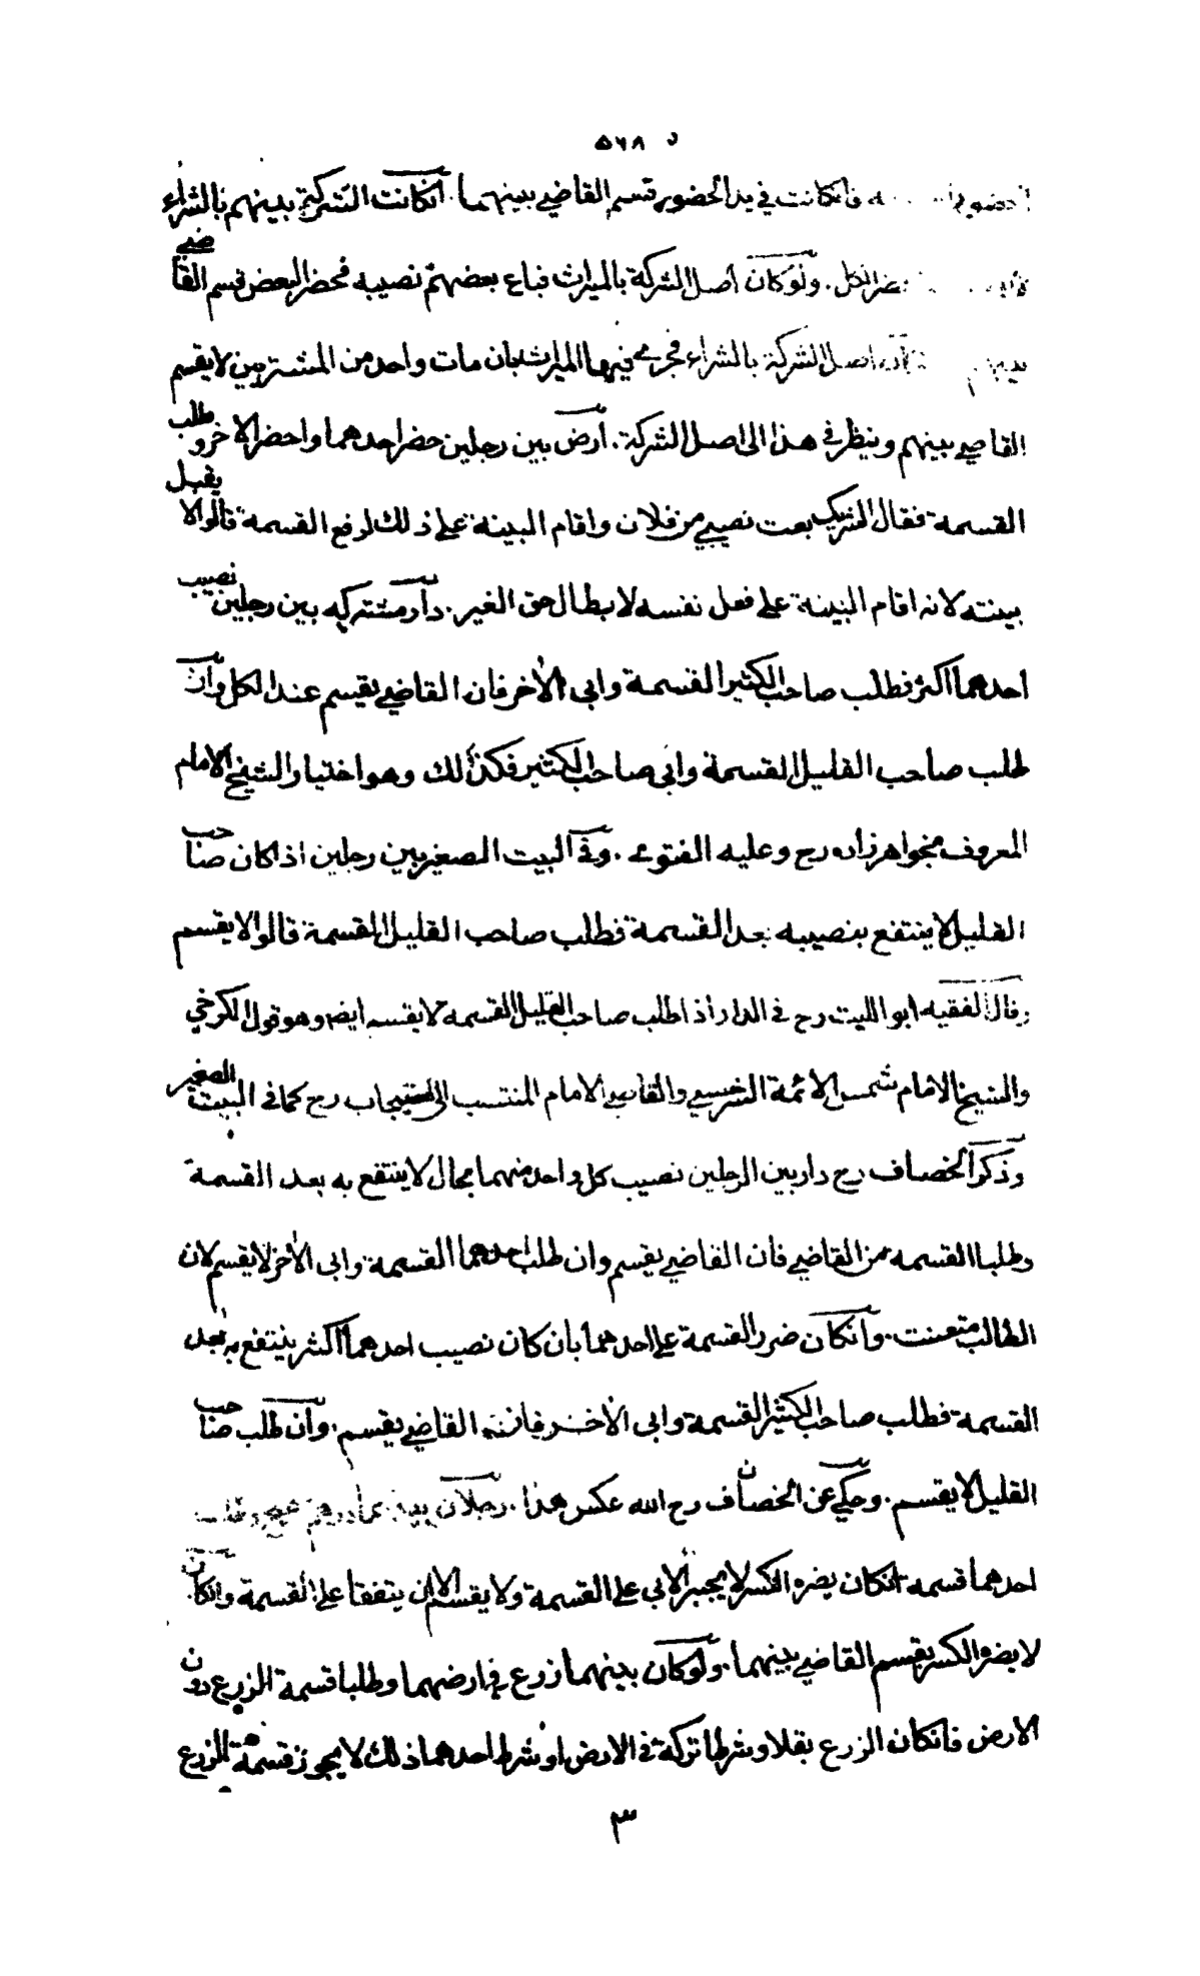 ٥٦٨
فانكانت في يد الحضور قسم القاضي بينهما. انكانت الشركة بينهم بالشراء
الكل. ولو كان اصل الشركة بالميراث فباع بعضهم نصيبه فحضر البعض قسم القاضي
بينهم اصل الشركة بالشراء فجرى فيها الميراث بان مات واحد من المشتريين لا يقسم
القاضي بينهم وينظر في هذا الى اصل الشركة. ارض بين رجلين حضر احدهما واحضر الاخر وطلب
القسمة فقال الشريك بعت نصيبي من فلان واقام البينة على ذلك لدفع القسمة قالوا لا يقبل
بينته لانه اقام البينة على فعل نفسه لابطال حق الغير. دار مشتركة بين رجلين نصيب
احدهما اكثر فطلب صاحب الكثير القسمة وابى الآخر فان القاضي يقسم عند الكل وان
طلب صاحب القليل القسمة وابى صاحب الكثير فكذلك وهو اختيار الشيخ الامام
المعروف بخواهرزاده رح وعليه الفتوى. وفي البيت الصغير بين رجلين اذا كان صاحب
القليل لا ينتفع بنصيبه بعد القسمة فطلب صاحب القليل القسمة قالوا لا يقسم
وقال الفقيه ابو الليث رح في الدار اذا طلب صاحب القليل القسمة لا يقسم ايضا وهو قول الكرخي
والشيخ الامام شمس الائمة السرخسي والقاضي الامام المنتسب الى اسبيجاب رح كما في البيت الصغير
وذكر الخصاف رح دار بين الرجلين نصيب كل واحد منهما بحال لا ينتفع به بعد القسمة
وطلبا القسمة من القاضي فان القاضي يقسم وان طلب احدهما القسمة وابى الآخر لا يقسم لان
الطالب متعنت. وانكان ضرر القسمة على احدهما بان كان نصيب احدهما اكثر ينتفع به بعد
القسمة فطلب صاحب الكثير القسمة وابى الآخر فان القاضي يقسم. وان طلب صاحب
القليل لا يقسم. وحكي عن الخصاف رح الله عكس هذا. رجلان بينهما درهم صحيح وطلب
احدهما قسمه انكان يضره الكسر لا يجبر الآبي على القسمة ولا يقسم الا ان يتفقا على القسمة وانكان
لا يضره الكسر يقسم القاضي بينهما. ولو كان بينهما زرع في ارضهما وطلبا قسمة الزرع دون
الارض فانكان الزرع بقلا وشرطا تركه في الارض او شرط احدهما ذلك لا يجوز قسمة الزرع
٣